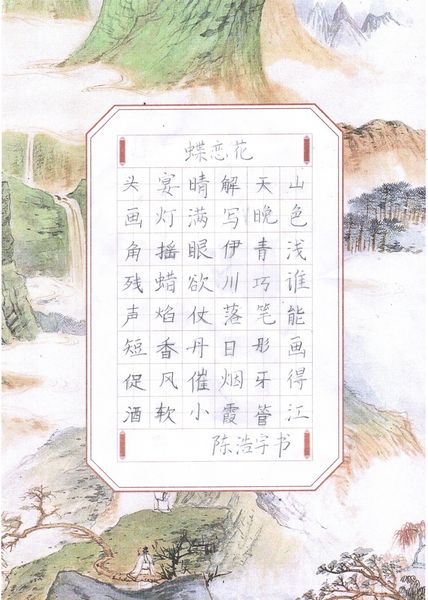 蝶恋花
山色浅谁能画得江
天晚青巧笔彤牙管
解写伊川落日烟霞
晴满眼欲仗丹催小
宴灯摇蜡焰香风软
头画角残声短促酒
陈浩宇书